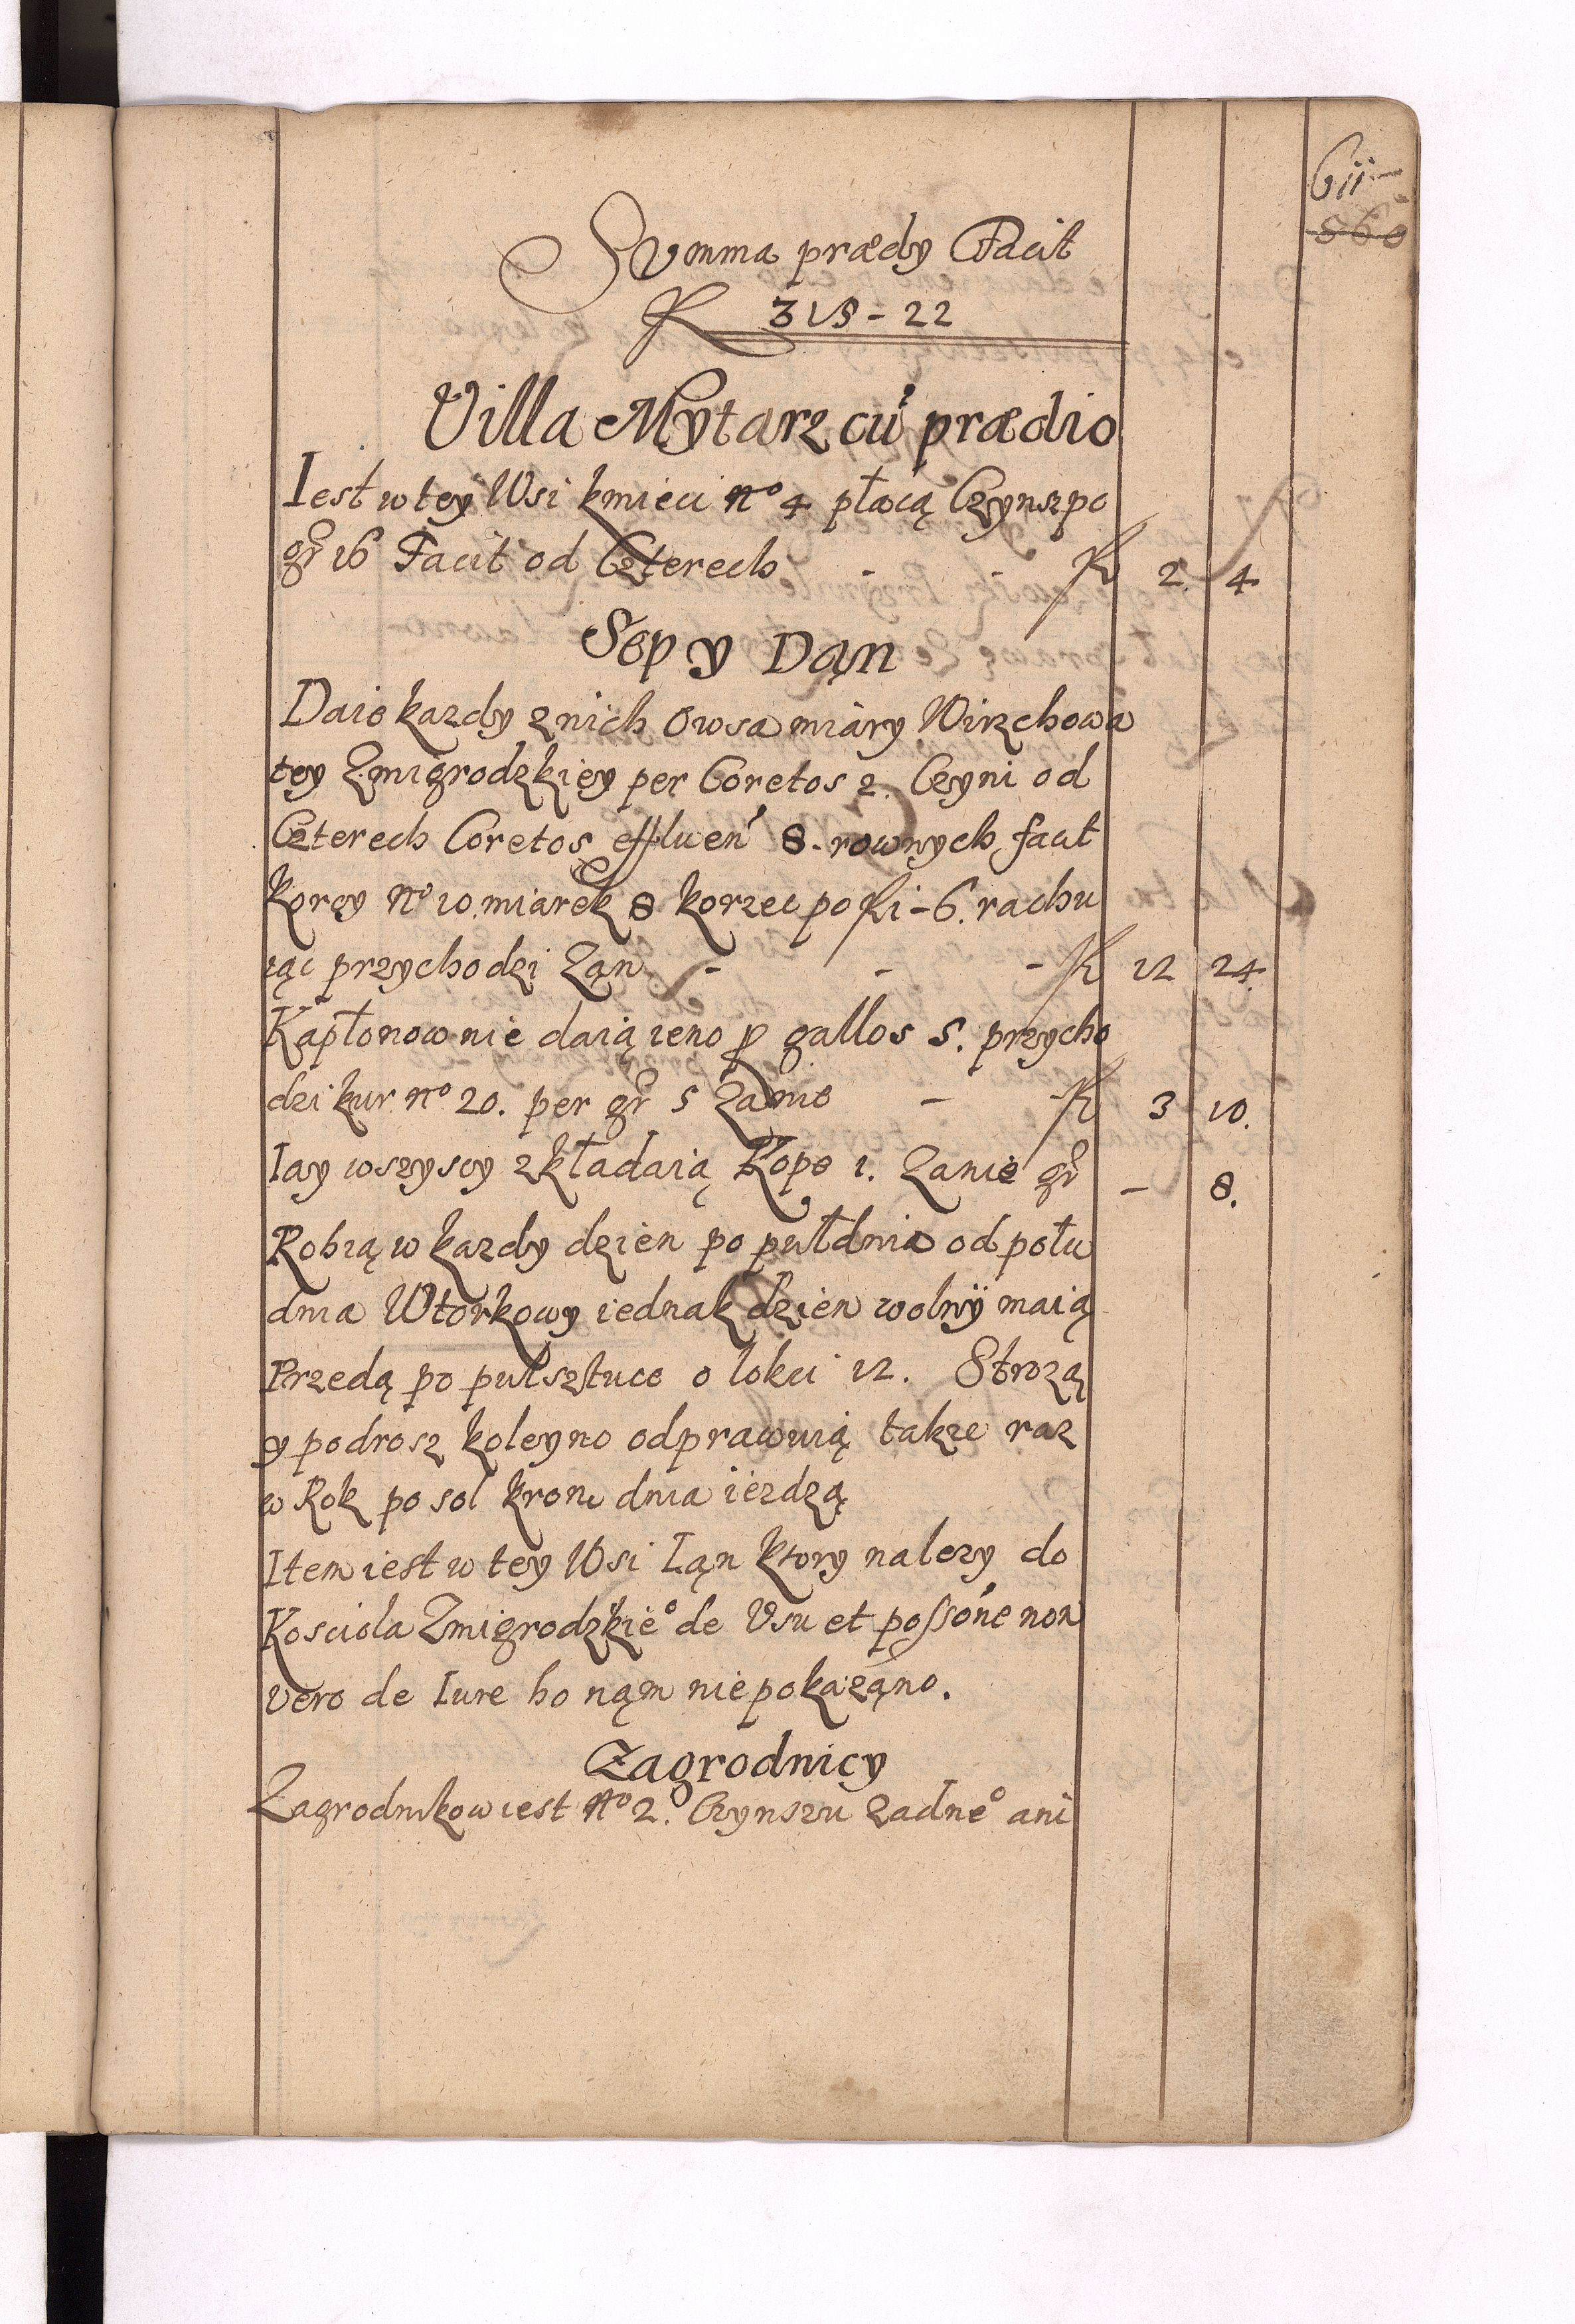 611
560
Summa prædy Facit
R 315 - 22
Villa Mytarz cū prædio
Iest w tey Wsi kmieci No 4 płacą Czynsz po
gr 16 Facit od Czterech - - R 2. 4
Sep y Dąn
Daie kazdy z nich Owsa miary Wirzchowa
tey Zmigrodzkiey per Coretos 2. Czyni od
Czterech Coretos effluen 8. rownych facit
korcy No 10. miarek 8 korzec po R i - 6. rachu
iąc przychodzi Zan - - - R 12 24.
Kapłonow nie daią ieno p gallos 5. przycho
dzi kur No 20. per gr 5 Zanie - R 3 10.
Iay wszyscy zkładaią Kope 1. Zanie gr - 8.
Robią w kazdy dzien po pułdnia od połu
dnia Wtorkowy iednak dzien wolny maią
Przedą po pulsztuce o lokci 12. Strozą
y podrosz koleyno odprawuią takze raz
w Rok po sol dnia iezdzą
Item iest w tey Wsi Łąn ktory nalezy do
Kosciola Zmigrodzkieo de Usu et possone non
vero de Iure bo nąm nie pokaząno.
Zagrodnicy
Zagrodnikow iest No 2. Czynszu zadneo ani